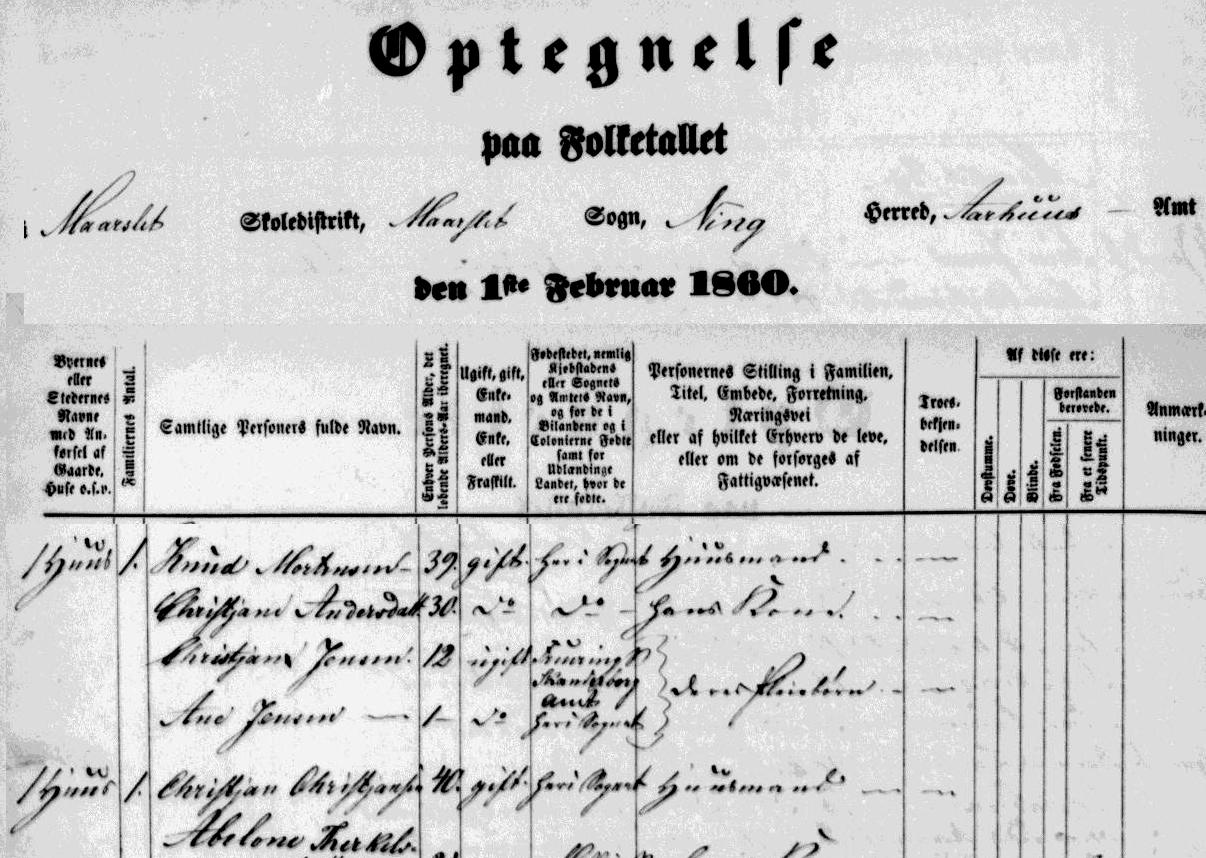 Optegnelse
paa Folketallet
Maarslet Skoledistrikt, Maarslet Sogn, Ning Herred, Aarhuus Amt
den 1ste Februar 1860.
Byernes
eller
Stedernes
Navne
med An-
førsel af
Gaarde,
Huse o.s.v.
Familiernes Antal.
Samtlige Personers fulde Navn.
Enhver Persons Alder, det
løbende Alders-Aar iberegnet.
Ugift, gift,
Enke-
mand,
Enke,
eller
Fraskilt.
Fødestedet, nemlig
Kjøbstadens
eller Sognets
og Amtets Navn,
og for de i
Bilandene og i
Colonierne Fødte
samt for
Udlændinge
Landet, hvor de
ere fødte.
Personernes Stilling i Familien,
Titel, Embede, Forretning,
Næringsvei
eller af hvilket Erhverv de leve,
eller om de forsørges af
Fattigvæsenet.
Troes-
bekjen-
delsen.
Af disse ere:
Døvstumme.
Døve.
Blinde.
Forstanden
berøvede.
Fra Fødselen.
Fra et senere
Tidspunkt.
Anmærk-
ninger.
1 Huus 1. Knud Mortensen 39. gift. Her i Sognet Huusmand
Christjane Andersdatt. 30. Do Do Hans Kone.
Christjane Jensen. 12 ugift Fruering S
Skanderborg
Amt
deres Pleiebørn
Ane Jensen 1 Do Her i Sognet
1 Huus 1. Christjan Christjansen 40. gift. Her i Sognet Huusmand
Abelone Therkels-